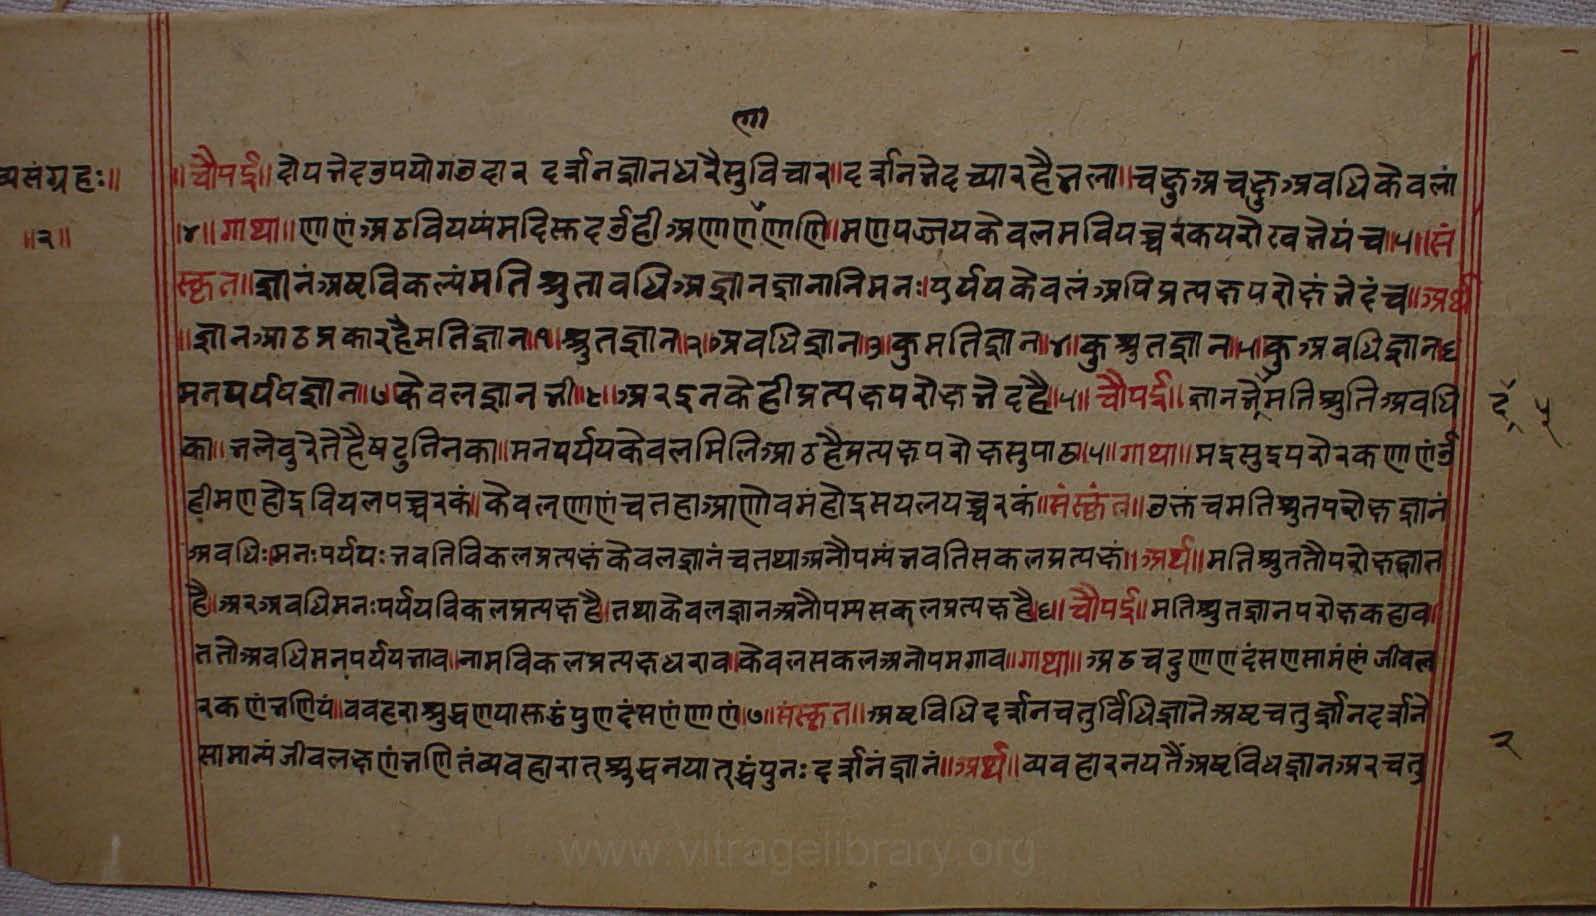 णा
व्यसंग्रहः॥
॥२॥
॥चौपई॥ दोय भेद उपयोग उदार दर्शन ज्ञान धरै सुविचार॥ दर्शन भेद च्यार है भला॥ चक्षु अचक्षु अवधि केवलां
॥४॥ गाथा॥ णाणं अठवियय्यं मदिसुदउही अणाणणाणि॥ मणपज्जयकेवलमवि पच्चरकपरोरवभेयं च॥५॥ सं
स्कृत॥ ज्ञानं अष्टविकल्पं मतिश्रुतावधि अज्ञानज्ञानानि मनः॥पर्यय केवलं अपि प्रत्यक्षपरोक्षं भेदं च॥ अर्थ
॥ज्ञान आठ प्रकार है मतिज्ञान॥१॥ श्रुतज्ञान॥२॥ अवधिज्ञान॥३॥ कुमतिज्ञान॥४॥ कुश्रुतज्ञान॥५॥ कुअवधिज्ञान॥६
मनपर्ययज्ञान॥७॥ केवलज्ञान भी॥८॥ अर इनके ही प्रत्यक्ष परोक्ष भेद है॥५॥ चौपई॥ ज्ञानभै मति श्रुति अवधि
का॥ भले वुरेते है षटु तिनका॥ मनपर्यय केवल मिलि आठ है प्रत्यक्ष परोक्ष सुपाठ॥५॥ गाथा॥ मइसुइपरोरकणाणं उ
हीमणहोइ वियलपच्चरकं॥ केवलणाणं च तहा आणोवमं होइ सयलयच्चरकं॥ संस्कृंत॥ उक्तं च मतिश्रुतपरोक्षज्ञानं
अवधिः॥मनःपर्ययः भवति विकलप्रत्यक्षं केवलज्ञानं च तथा अनौपम्यं भवति सकलप्रत्यक्षं॥ अर्थ॥ मतिश्रुत तौ परोक्षज्ञान
है॥ अर अवधि मनःपर्यय विकलप्रत्यक्ष है॥ तथा केवलज्ञान अनौपम्य सकलप्रत्यक्ष है॥६॥ चौपई॥ मति श्रुतज्ञान परोक्ष कहाव॥
ततो अवधि मनपर्यय भाव॥ नाम विकल प्रत्यक्ष धराव॥ केवल सकल अनोपम गाव॥ गाथा॥ अठचदुणाणदंसण सामंणं जीवल
रकणं भणियं॥ ववहरा श्रुद्धणया सुद्धं पुण दंसणं णाणं॥७॥ संस्कृत॥ अष्टविधि दर्शन चतुर्विधि ज्ञाने अष्ट चतुर्ज्ञानदर्शने
सामान्यं जीवलक्षणं भणितं व्यवहारात् श्रुद्धनयात्द्धं पुनः दर्शनं ज्ञानं॥ अर्थ॥ व्यवहारनयतैं अष्टविध ज्ञान अर चतु
दँ ५
२
www.vitragelibrary.org